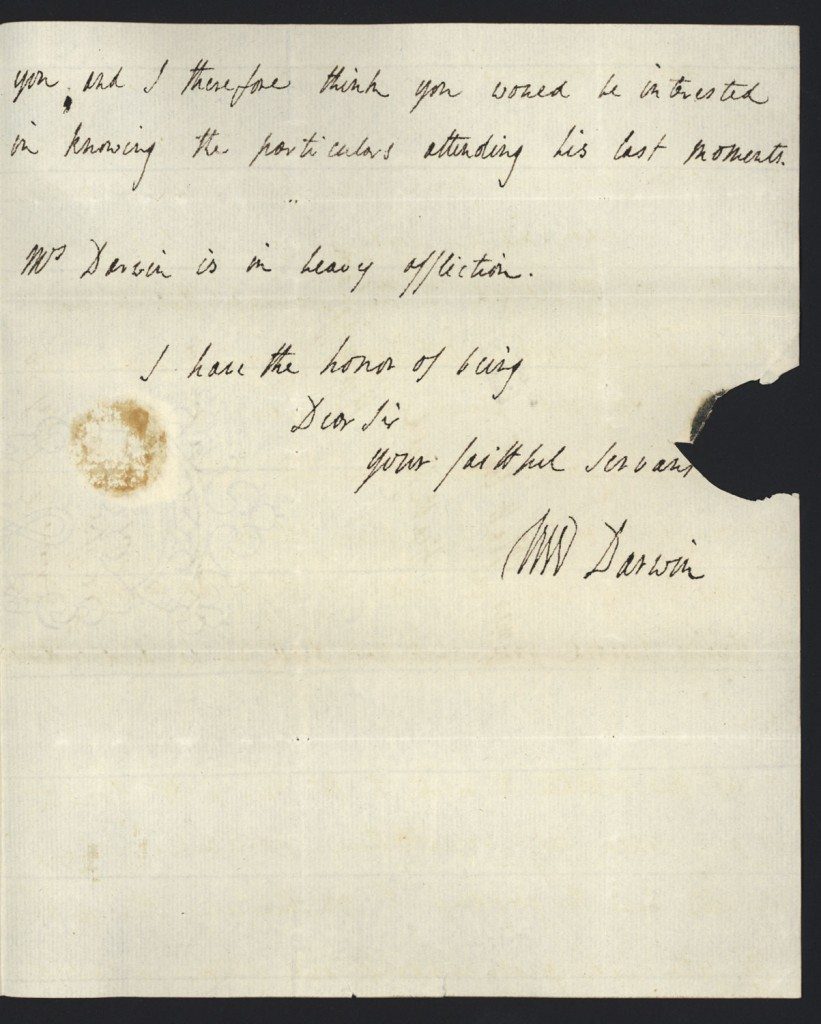 you, and I therefore think you would be interested
in knowing the particulars attending his last moments.
Mrs Darwin is in heavy affliction.
I have the honor of being
Dear Sir
your faithful Servan
Darwin